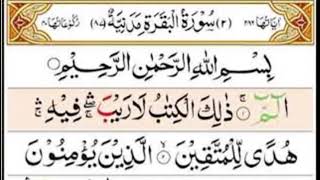 اٰيَاتُهَا ٢٨٦ (٢) سُوْرَةُ الْبَقَرَةِ مَدَنِيَّةٌ (٨٧) رُكُوْعَاتُهَا ٤٠
بِسْمِ اللّٰهِ الرَّحْمٰنِ الرَّحِيْمِ
الٓمّٓ ۚ ذٰلِكَ الْكِتٰبُ لَا رَيْبَ ۛ فِيْهِ ۛ
هُدًى لِّلْمُتَّقِيْنَ ۙ الَّذِيْنَ يُؤْمِنُوْنَ